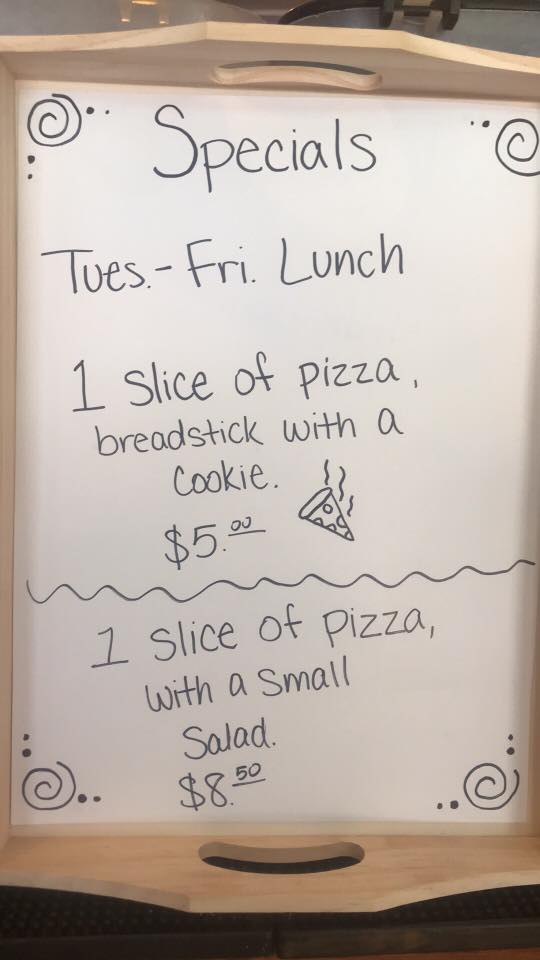 Specials
Tues.- Fri. Lunch
1 Slice of pizza,
breadstick with a
Cookie.
$5.00
1 Slice of pizza,
with a small
Salad.
$8.50